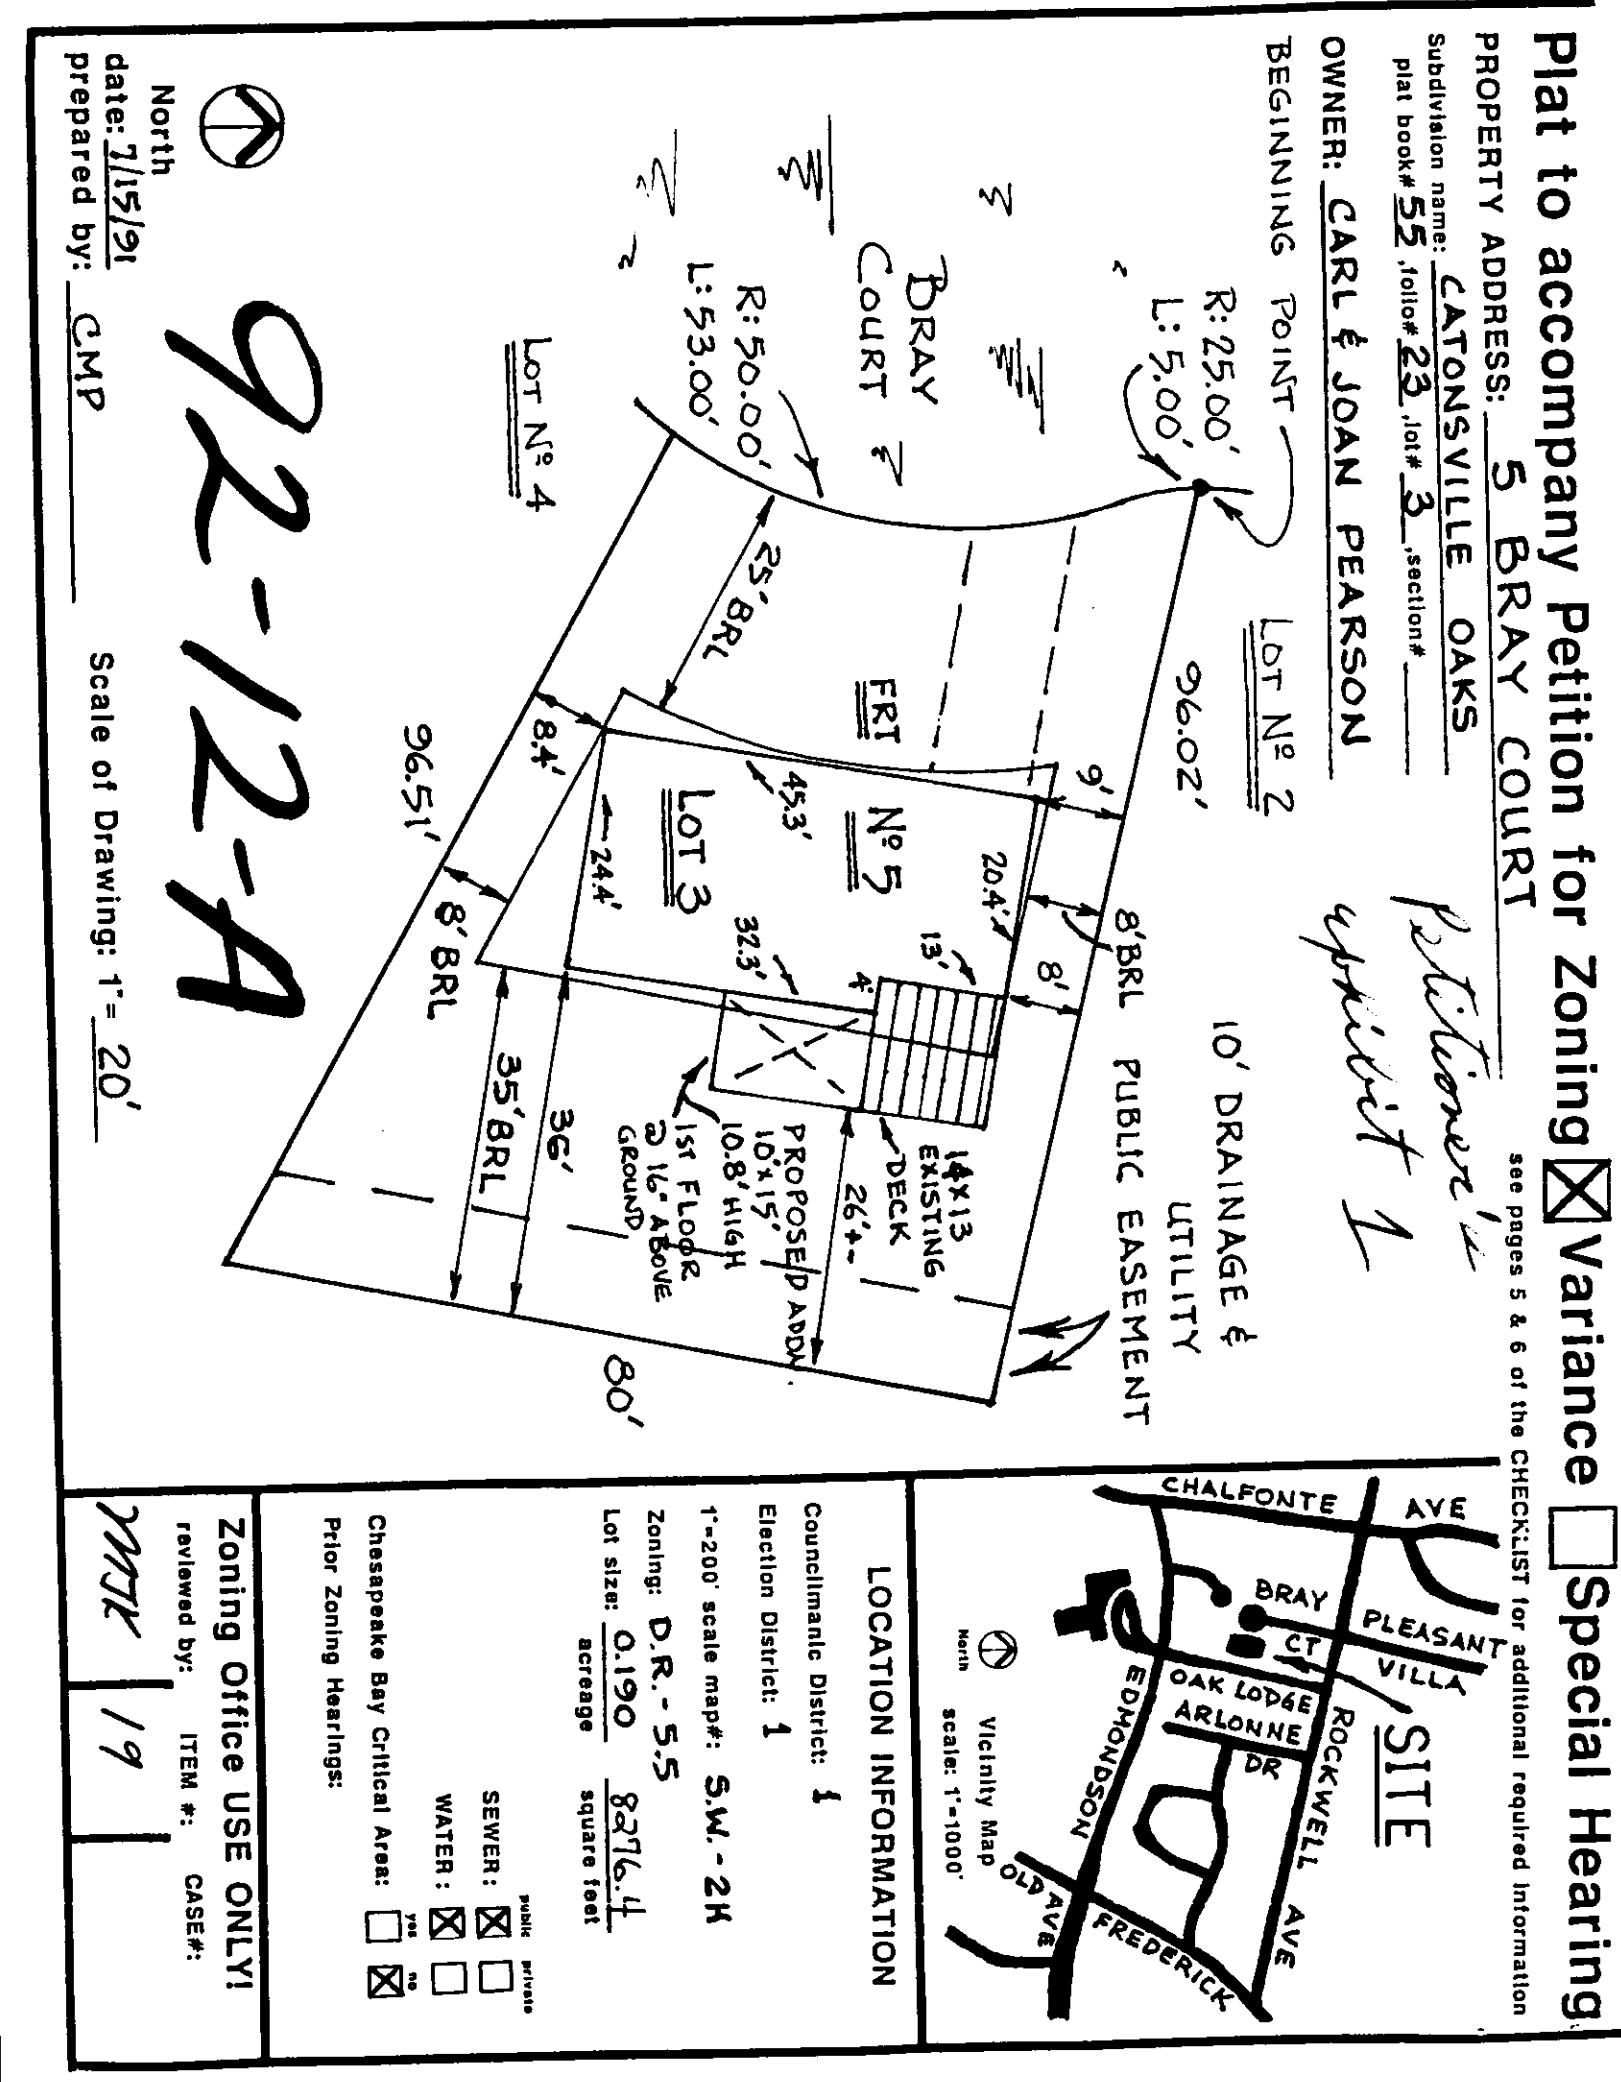 Plat to accompany Petition for Zoning ☒ Variance ☐ Special Hearing
PROPERTY ADDRESS: 5 BRAY COURT
see pages 5 & 6 of the CHECKLIST for additional required information
Subdivision name: CATONSVILLE OAKS
plat book# 55, folio# 23, lot# 3, section#
OWNER: CARL & JOAN PEARSON
Petitioner's
Exhibit 1
BEGINNING POINT
R: 25.00'
L: 5.00'
LOT Nº 2
96.02'
10' DRAINAGE &
UTILITY
PUBLIC EASEMENT
BRAY
COURT
R: 50.00'
L: 53.00'
25' BRL
FRT
9'
8' BRL
8'
Nº 5
20.4'
13'
45.3'
LOT 3
32.3'
4'
24.4'
8.4'
LOT Nº 4
96.51'
8' BRL
14X13
EXISTING
DECK
26'+-
PROPOSED ADDN
10'X15'
10.8' HIGH
1ST FLOOR
@ 16" ABOVE
GROUND
36'
35' BRL
80'
92-12-A
North
date: 7/15/91
prepared by: CMP
Scale of Drawing: 1"= 20'
CHALFONTE AVE
BRAY CT
PLEASANT
VILLA
SITE
OAK LODGE
ARLONNE
DR
ROCKWELL AVE
EDMONDSON
AVE
OLD
FREDERICK
North
Vicinity Map
scale: 1"=1000'
LOCATION INFORMATION
Councilmanic District: 1
Election District: 1
1"=200' scale map#: S.W.-2H
Zoning: D.R.-5.5
Lot size: 0.190 8276.4
acreage square feet
public private
SEWER: ☒ ☐
WATER: ☒ ☐
yes no
Chesapeake Bay Critical Area: ☐ ☒
Prior Zoning Hearings:
Zoning Office USE ONLY!
reviewed by: ITEM #: CASE#:
MJK 19